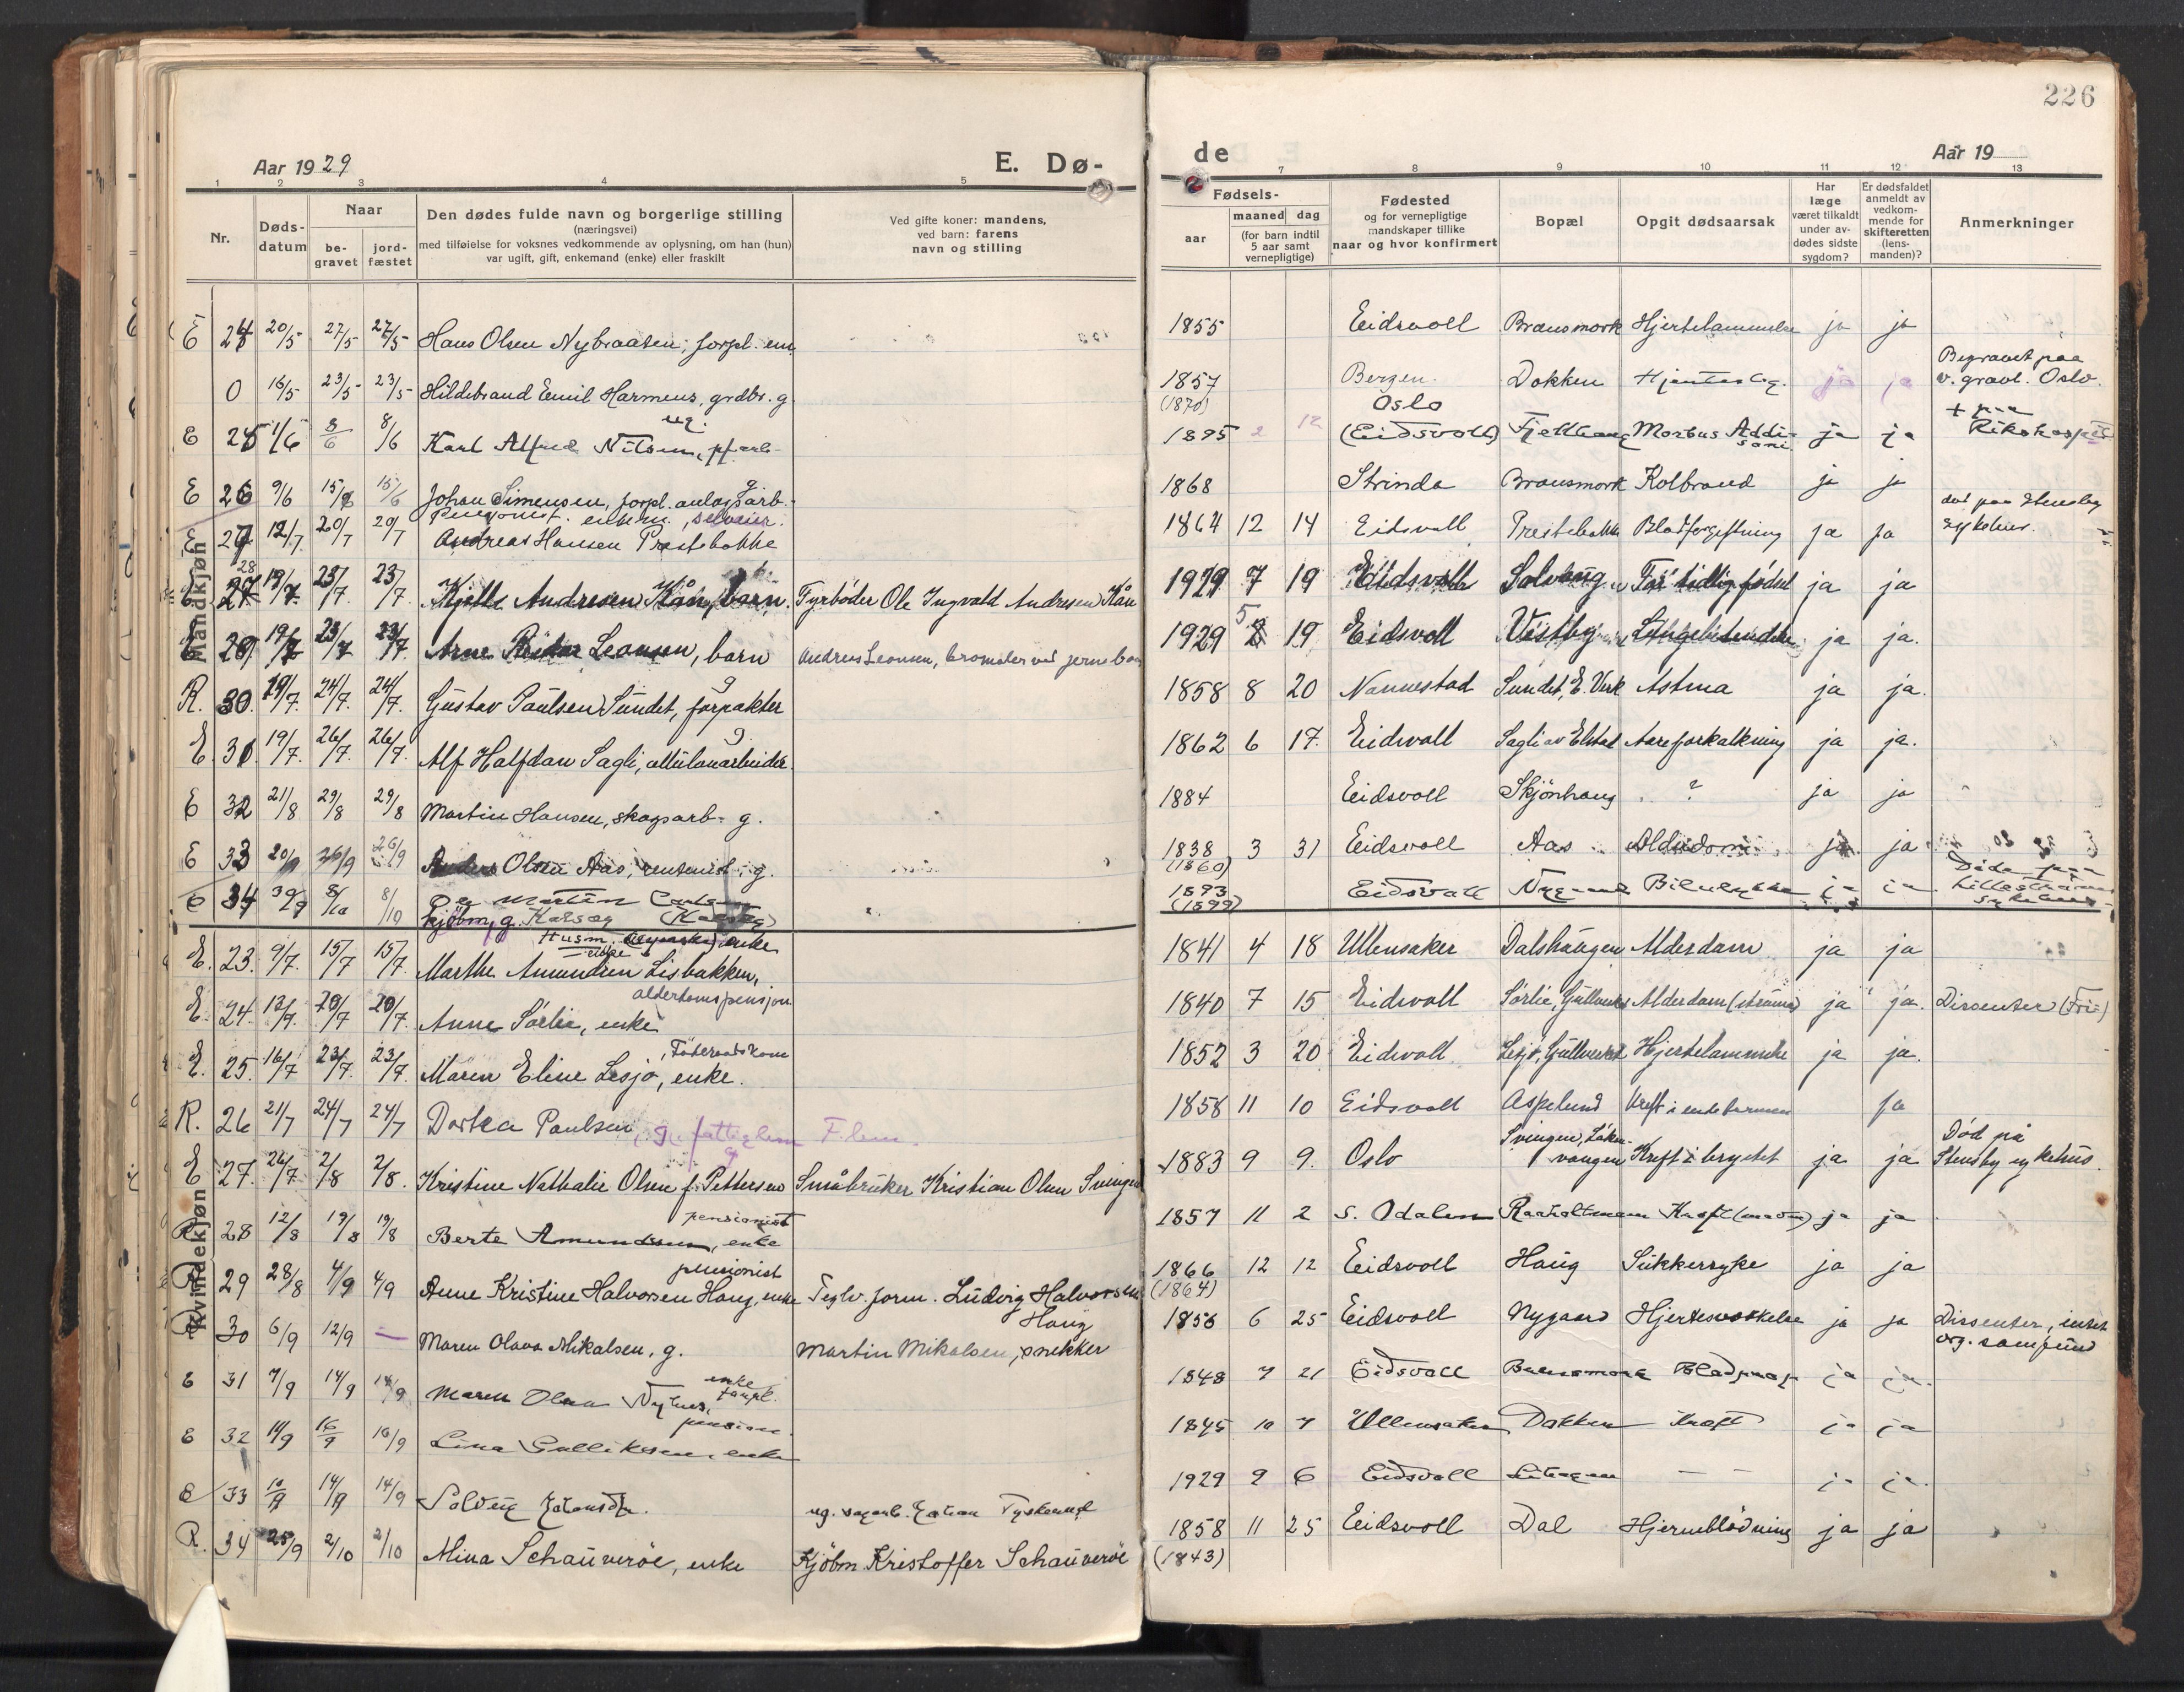 226
Aar 1929
E. Dø-
de
Aar 19
1 2 3 4 5
7 8 9 10 11 12 13
Nr.
Døds-
datum
Naar
be-
gravet
jord-
fæstet
Den dødes fulde navn og borgerlige stilling
(næringsvei)
med tilføielse for voksnes vedkommende av oplysning, om han (hun)
var ugift, gift, enkemand (enke) eller fraskilt
Ved gifte koner: mandens,
ved barn: farens
navn og stilling
Fødsels-
aar
maaned dag
(for barn indtil
5 aar samt
vernepligtige)
Fødested
og for vernepligtige
mandskaper tillike
naar og hvor konfirmert
Bopæl
Opgit dødsaarsak
Har
læge
været tilkaldt
under av-
dødes sidste
sygdom?
Er dødsfaldet
anmeldt av
vedkom-
mende for
skifteretten
(lens-
manden)?
Anmerkninger
Mandkjøn
E 24 20/5 27/5 27/5 Hans Olsen Nybraaten, forpl. em. 1855 Eidsvoll Brænsmork Hjertelammelse ja ja
0 16/5 23/5 23/5 Hildebrand Emil Harmens, grdbr. g 1857 (1870) Bergen Dokken Hjerteslag ja ja Begravet paa v. gravl. Oslo.
E 25 1/6 8/6 8/6 Karl Alfred Nilsen, ug. 1895 2 12 Oslo (Eidsvoll) Fjellhaug Morbus Addisoni ja ja + paa Rikshospit
E 26 9/6 15/6 15/6 Johan Simensen, forpl. anlægsarb. g 1868 Strinda Brænsmork Kolbrand ja ja
E 27 12/7 20/7 20/7 Pensjonist. enkem., selveier. Andreas Hansen Prestbakke 1864 12 14 Eidsvoll Prestebakke Blodforgiftning ja ja død paa Stensby sykehus.
E 28 19/7 23/7 23/7 Kjell Andresen Kån, barn. Fyrbøder Ole Ingvald Andresen Kån 1929 7 19 Eidsvoll Solvang For tidlig født ja ja
E 29 19/7 23/7 23/7 Arne Reidar Leonsen, barn Andreas Leonsen, bromaler ved jerneban 1929 5 19 Eidsvoll Vestby ja ja.
R. 30. 19/7. 24/7. 24/7. Gustav Paulsen Sundet, forpakter g 1858 8 20 Nannestad Sundet, E. Verk Astma ja ja.
E. 31. 19/7. 26/7. 26/7. Alf Halfdan Sagli, g 1862 6 17. Eidsvoll Sagli av Elstad Aareforkalkning ja ja.
E 32 21/8 29/8 29/8 Martin Hansen, skogsarb. g. 1884 Eidsvoll Skjönhaug ? ja ja
E 33 20/9 26/9 26/9 Anders Olsen Aas, rentenist, g. 1838 (1860) 3 31 Eidsvoll Aas Aldersdom ja ja
E 34 30/9 8/10 8/10 Martin Carlsen kjøbm, g. Karsæg 1893 (1899) Eidsvoll Bilulykke ja ja Døde paa Lillestrøm sykehus
Kvindekjøn
E. 23. 9/7. 15/7 15/7. Marthe Amundsen Lisbakken, Husm. enke 1841 4 18 Ullensaker Dalshaugen Alderdom ja ja
E. 24. 13/7. 20/7 20/7. Anne Sørlie, enke alderdomspensjon 1840 7 15 Eidsvoll Sørlie, Gullverket Alderdom ja ja. Dissenter (Fri)
E. 25. 16/7 23/7. 23/7. Maren Eline Lesjø, enke. Føderaadskone 1852 3 20 Eidsvoll Lesjø, Gullverket Hjertelammelse ja ja.
R. 26 21/7 24/7 24/7 Dortea Paulsen, g. fattiglem Flem. 1858 11 10 Eidsvoll Aspelund Kreft i endetarmen ja
E 27. 26/7. 2/8 2/8. Kristine Nathalie Olsen f. Pettersen g Småbruker Kristian Olsen Svingen 1883 9 9. Oslo Svingen, Låkevangen Kreft i brystet ja ja Død på Stensby sykehus.
R 28 12/8 19/8 19/8 Berte Amundsen, enke pensionist 1857 11 2 S. Odalen Raaholtmoen Kreft ja ja
R 29 28/8 4/9 4/9 Anne Kristine Halvorsen Haug, enke pensionist Teglv. form. Ludvig Halvorsen Haug 1866 (1864) 12 12 Eidsvoll Haug Sukkersyke ja ja
R 30 6/9 12/9 — Maren Olava Mikalsen, g. Martin Mikalsen, snekker 1856 6 25 Eidsvoll Nygaard Hjertesvækkelse ja ja Dissenter, intet org. samfund
E 31 7/9 14/9 14/9 Maren Olsen Nyhus, enke forpl. 1848 7 21 Eidsvoll Brænsmork Blodprop ja ja.
E 32 11/9 16/9 16/9 Lina Gulliksen, enke pension. 1845 10 7 Ullensaker Dokken Kreft ja ja
E 33 10/9 14/9 14/9 Solveig ug. 1929 9 6 Eidsvoll — — ja ja.
R. 34 25/9 2/10 2/10 Mina Schauveröe, enke Kjöbm. Kristoffer Schauveröe 1858 (1843) 11 25 Eidsvoll Dal Hjerneblødning ja ja